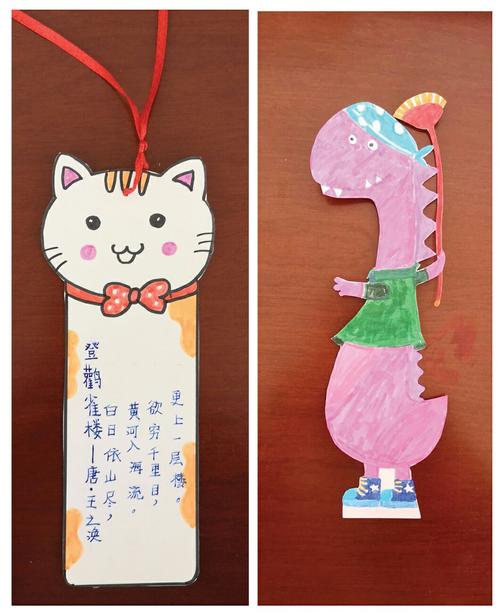 登鹳雀楼—唐·王之涣
白日依山尽，
黄河入海流。
欲穷千里目，
更上一层楼。